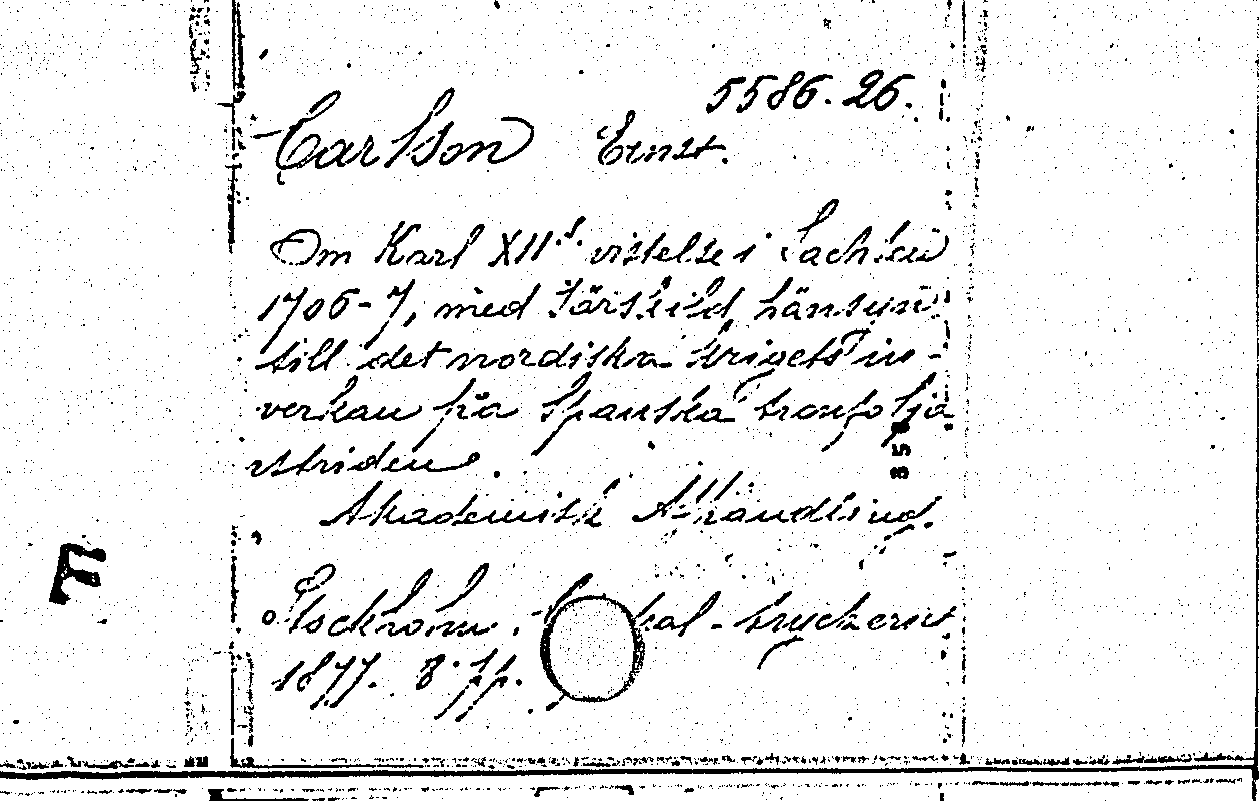 5586.26.
Carlson Ernst.
Om Karl XII:s vistelse i Sachsen
1706-7, med särskild hänsyn
till det nordiska krigets in-
verkan på Spanska tronfölja
striden.
Akademisk Afhandling.
Stockholm. tryckeriet
1877. 8º
F